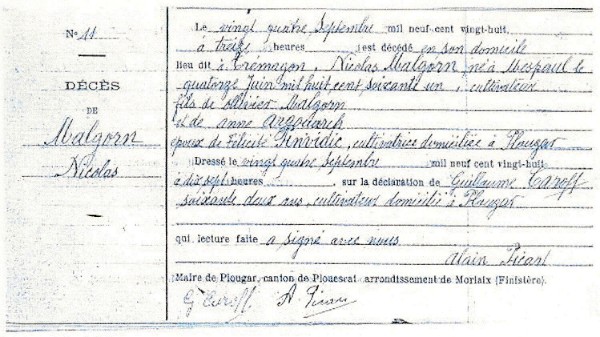 N° 11
DÉCÈS
DE
Malgorn
Nicolas
Le vingt quatre septembre mil neuf cent vingt-huit,
à treize heures est décédé en son domicile
lieu dit à Tremagon, Nicolas Malgorn né à Mespaul le
quatorze juin mil huit cent soixante un, cultivateur
fils de ollivier Malgorn
et de anne Argouarch
époux de Félicité Simidic, cultivatrice domiciliée à Plougar
Dressé le vingt quatre septembre mil neuf cent vingt-huit
à dix sept heures, sur la déclaration de Guillaume Caroff
soixante deux ans, cultivateur domicilié à Plougar
qui, lecture faite a signé avec nous
alain Picart
Maire de Plougar, canton de Plouescat arrondissement de Morlaix (Finistère).
G Caroff A. Picart